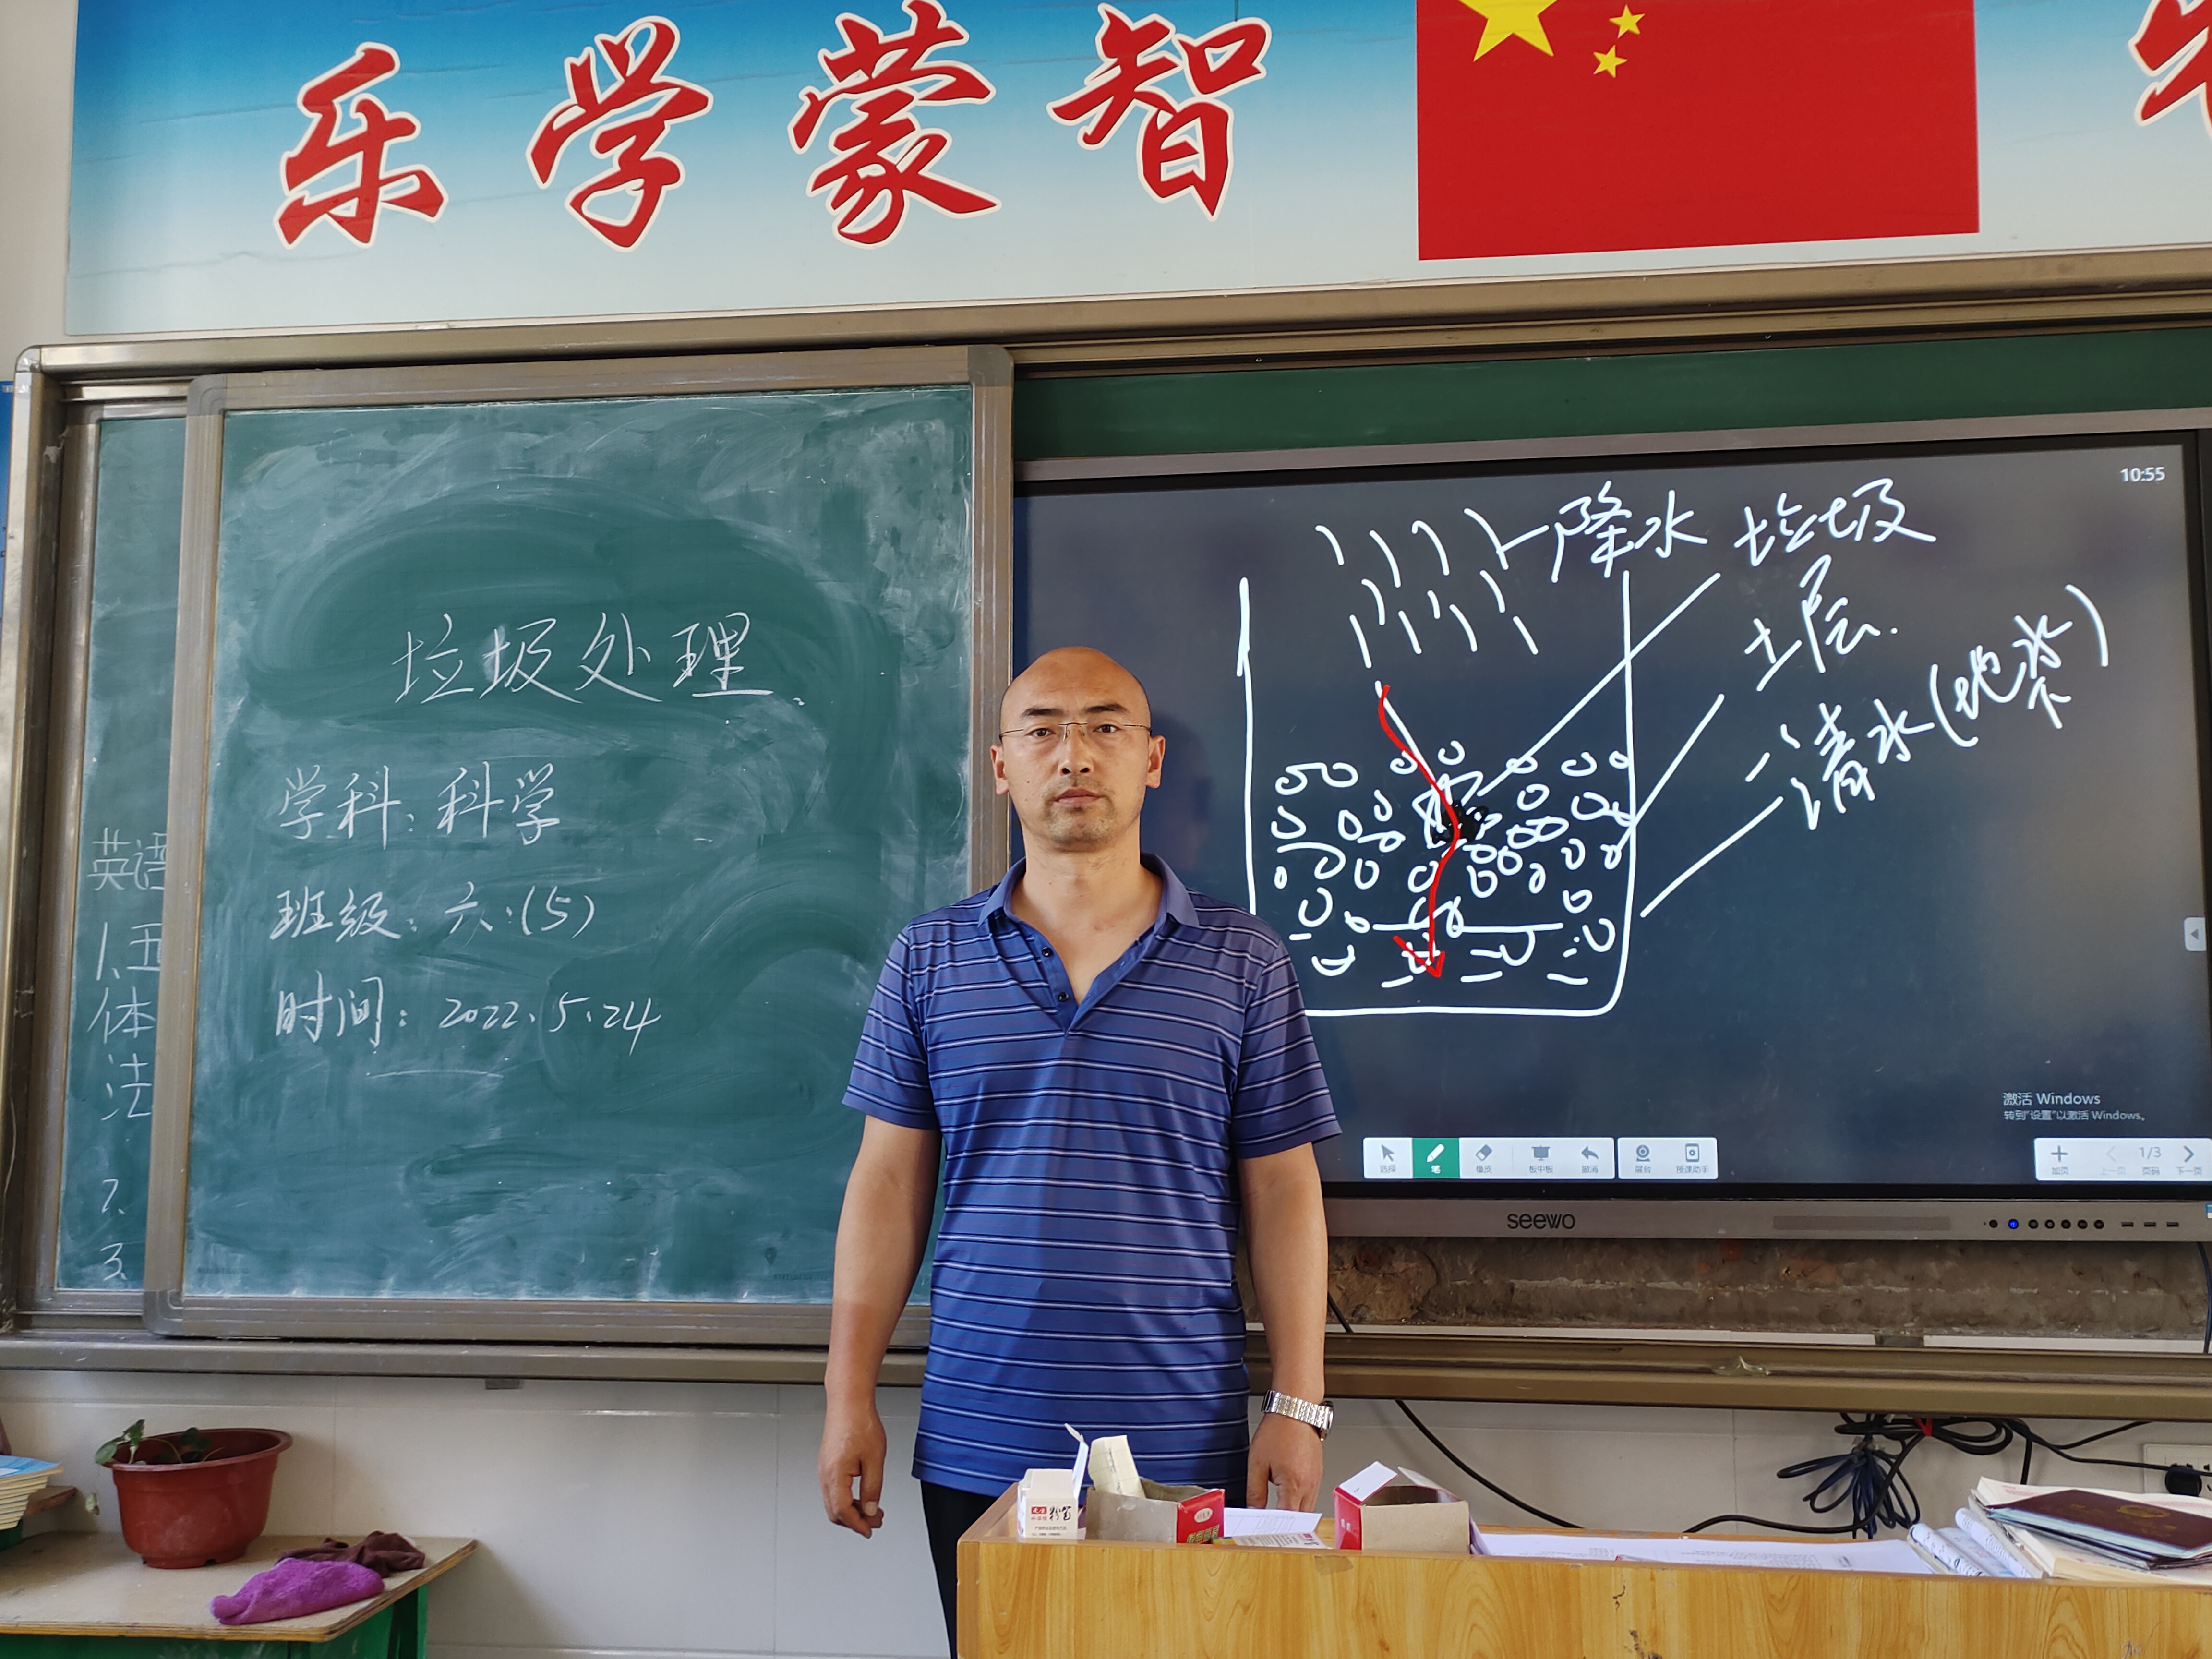 乐学蒙智
垃圾处理
学科：科学
班级：六.(5)
时间：2022.5.24
英语
1.五
体
法
2.
3.
10:55
降水
垃圾
土层.
清水(地下水)
激活 Windows
转到"设置"以激活 Windows。
选择 笔 橡皮 板中板 撤消 展台 授课助手
加页 上一页 1/3 页码 下一页
seewo
粉笔